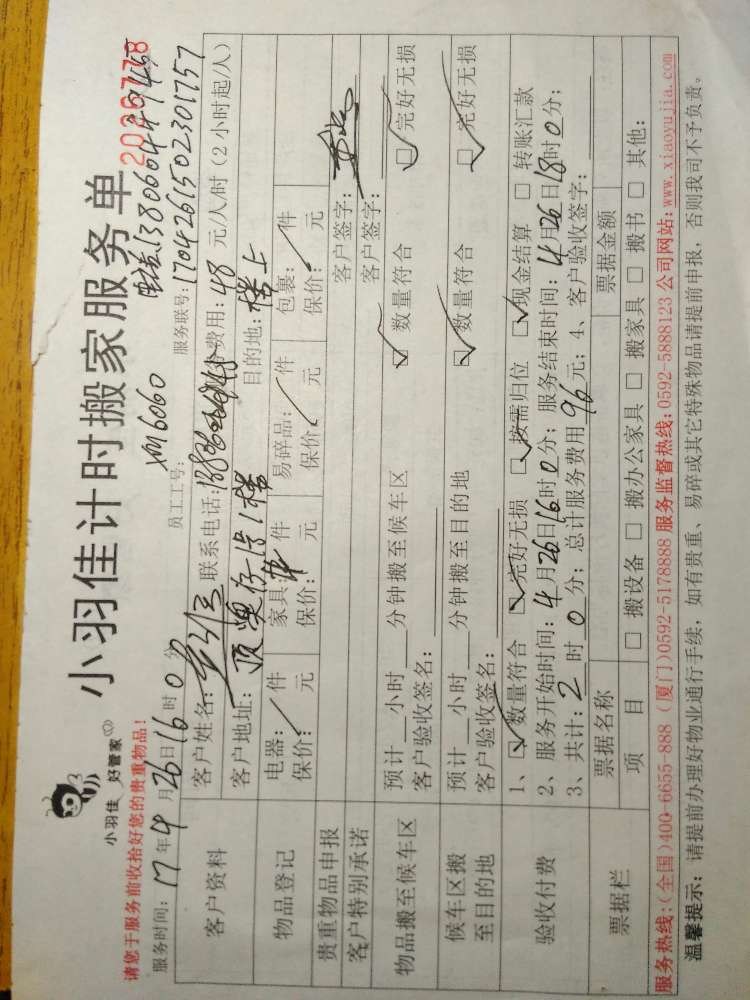 小羽佳 好管家
小羽佳计时搬家服务单 2026778
请您于服务前收拾好您的贵重物品！
员工工号: XM6060
服务时间: 17年4月26日16时0分 服务联号: 1704261502301757
客户资料
客户姓名: 联系电话: 费用: 48 元/人/时 (2小时起/人)
客户地址: 1楼 目的地: 楼上
物品登记
电器: / 件 家具: 件 易碎品: / 件 包裹: / 件
保价: 元 保价: 元 保价: 元 保价: 元
贵重物品申报 客户签字:
客户特别承诺 客户签字:
物品搬至候车区
预计 小时 分钟搬至候车区 ☑ 数量符合 ☑ 完好无损
客户验收签名:
候车区搬至目的地
预计 小时 分钟搬至目的地 ☑ 数量符合 ☑ 完好无损
客户验收签名:
验收付费
1、☑ 数量符合 ☑ 完好无损 ☑ 按需归位 ☑ 现金结算 □ 转账汇款
2、服务开始时间: 4月26日16时0分; 服务结束时间: 4月26日18时0分;
3、共计: 2 时 0 分; 总计服务费用 96 元; 4、客户验收签字:
票据栏
票据名称 票据金额
项 目 □ 搬设备 □ 搬办公家具 □ 搬家具 □ 搬书 □ 其他:
服务热线:(全国)400-6655-888 (厦门)0592-5178888 服务监督热线:0592-5888123 公司网站:www.xiaoyujia.com
温馨提示: 请提前办理好物业通行手续, 如有贵重、易碎或其它特殊物品请提前申报, 否则我司不予负责。